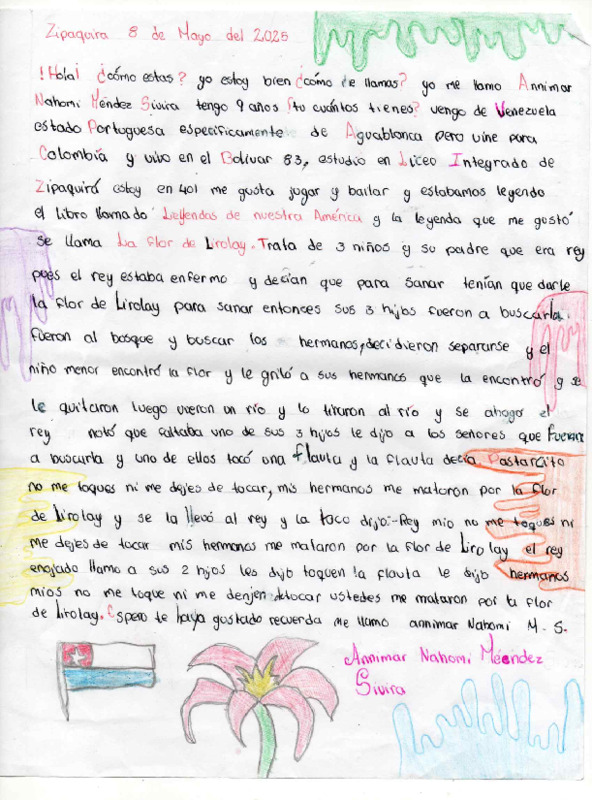 Zipaquira 8 de Mayo del 2025
!Hola! ¿cómo estas? yo estoy bien ¿cómo te llamas? yo me llamo Annimar
Nahomi Méndez Sivira tengo 9 años ¿tu cuántos tienes? vengo de Venezuela
estado Portuguesa especificamente de Aguablanca pero vine para
Colombia y vivo en el Bolivar 83, estudio en Liceo Integrado de
Zipaquirá estoy en 401 me gusta jugar y bailar y estabamos leyendo
el libro llamado Leyendas de nuestra América y la leyenda que me gustó
se llama La flor de Lirolay. Trata de 3 niños y su padre que era rey
pues el rey estaba enfermo y decían que para sanar tenían que darle
la flor de Lirolay para sanar entonces sus 3 hijos fueron a buscarla.
fueron al bosque y buscar los hermanos, decidieron separarse y el
niño menor encontró la flor y le gritó a sus hermanos que la encontró y se
le quitaron luego vieron un río y lo tiraron al río y se ahogo el
rey notó que faltaba uno de sus 3 hijos le dijo a los señores que fueran
a buscarla y uno de ellos tocó una flauta y la flauta decía Pastorcito
no me toques ni me dejes de tocar, mis hermanos me mataron por la flor
de Lirolay y se la llevó al rey y la toco dijo:-Rey mio no me toques ni
me dejes de tocar mis hermanos me mataron por la flor de Lirolay el rey
enojado llamo a sus 2 hijos les dijo toquen la flauta le dijo hermanos
mios no me toque ni me denjen dktocar ustedes me mataron por la flor
de Lirolay. Espero te haya gustado recuerda me llamo annimar Nahomi M. S.
Annimar Nahomi Méendez
Sivira